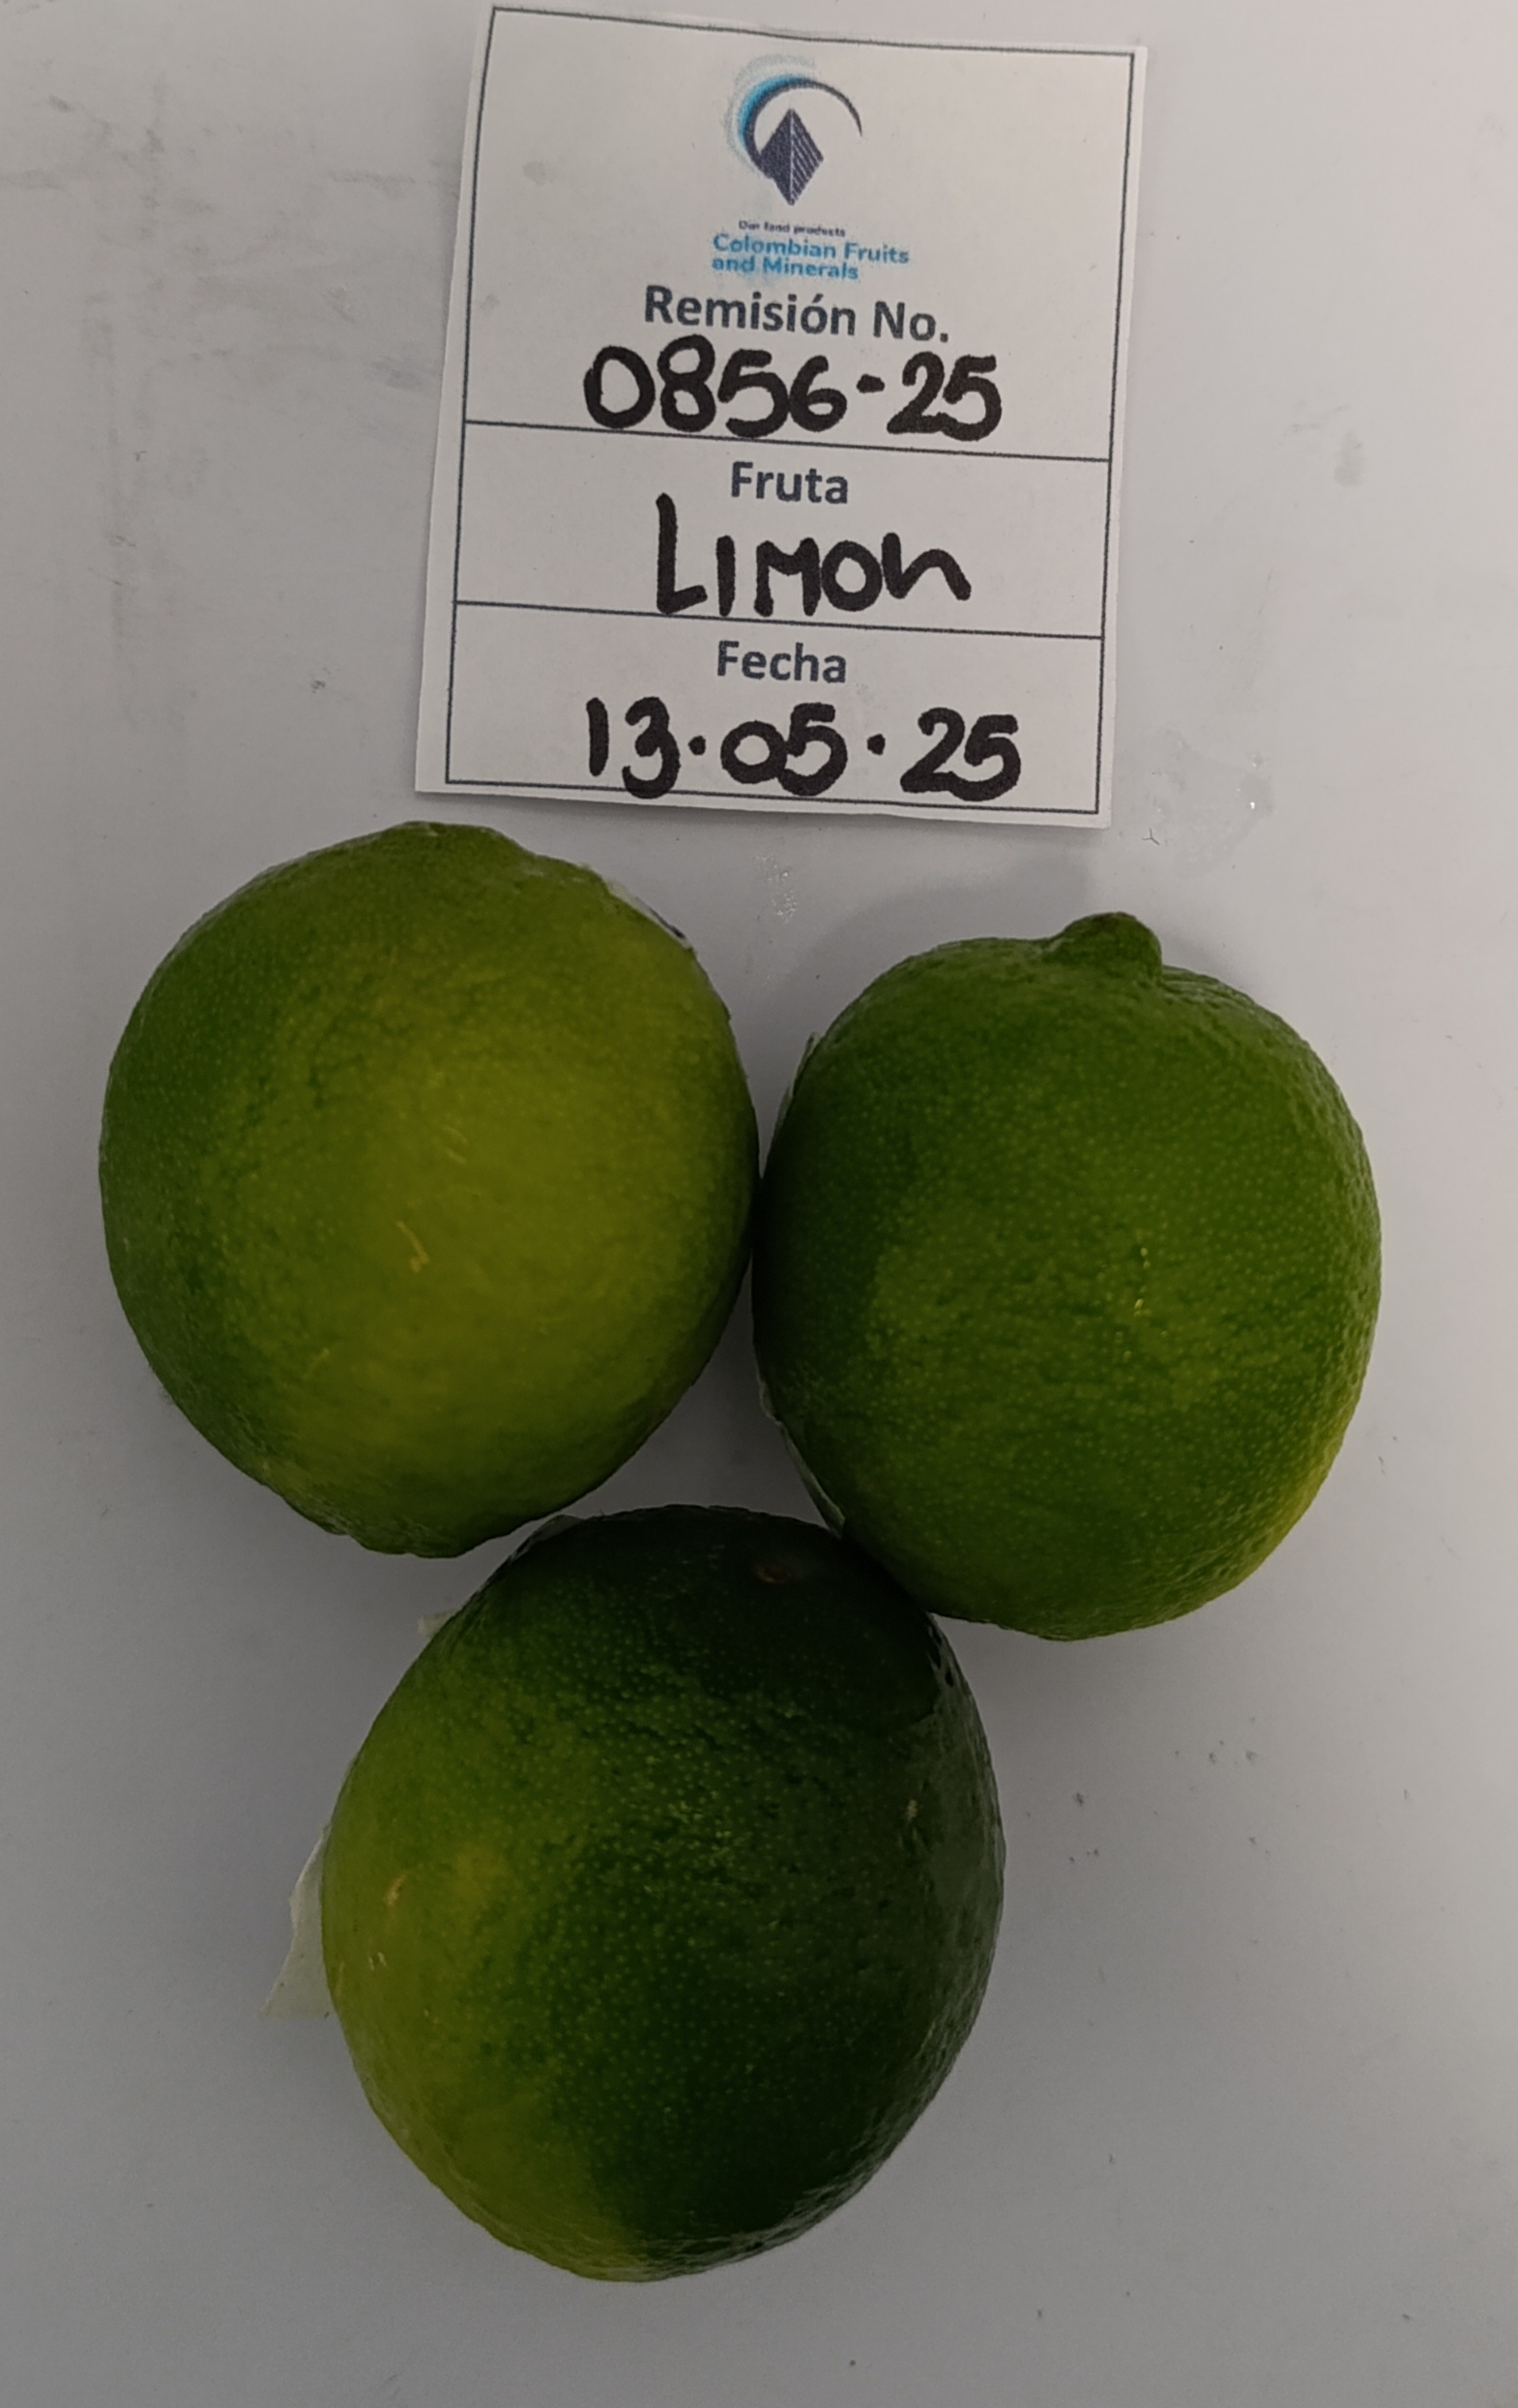 Our land products
Colombian Fruits
and Minerals
Remisión No.
0856-25
Fruta
LIMON
Fecha
13·05·25